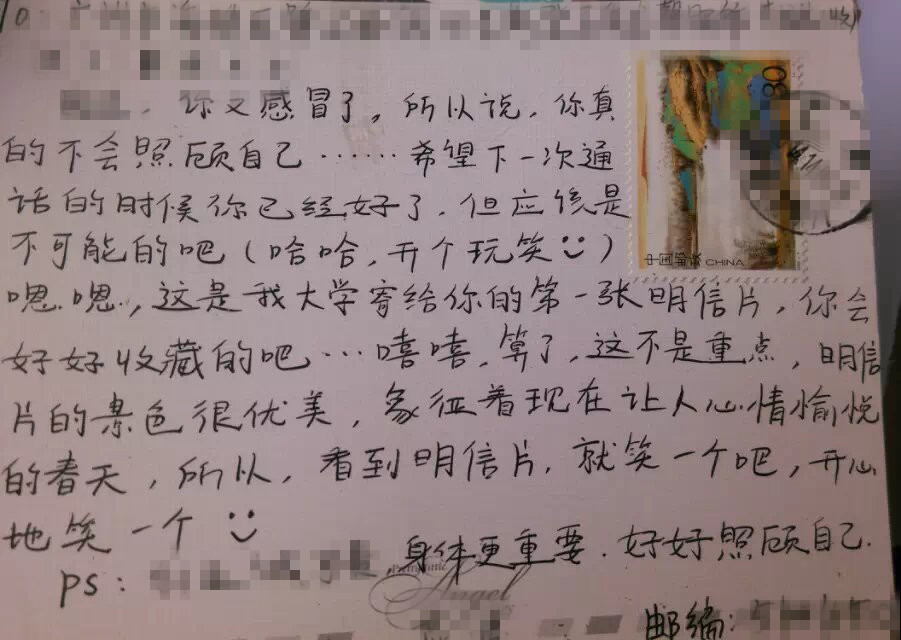 你又感冒了，所以说，你真
的不会照顾自己……希望下一次通
话的时候你已经好了，但应该是
不可能的吧（哈哈，开个玩笑）
嗯嗯，这是我大学寄给你的第一张明信片，你会
好好收藏的吧…嘻嘻，算了，这不是重点，明信
片的景色很优美，象征着现在让人心情愉悦
的春天，所以，看到明信片，就笑一个吧，开心
地笑一个
PS：身体更重要．好好照顾自己．
邮编：
80
中国邮政 CHINA
Angel